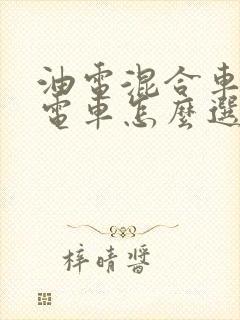 油電混合車
電車怎麼選
梓晴醬